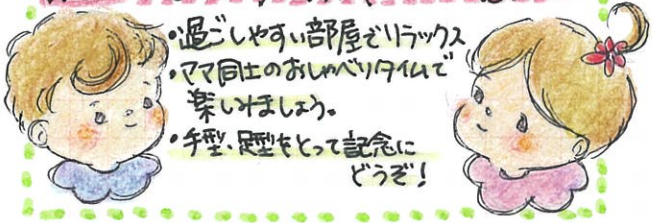 ・過ごしやすい部屋でリラックス
・ママ同士のおしゃべりタイムで
楽しみましょう。
・手型、足型をとって記念に
どうぞ!